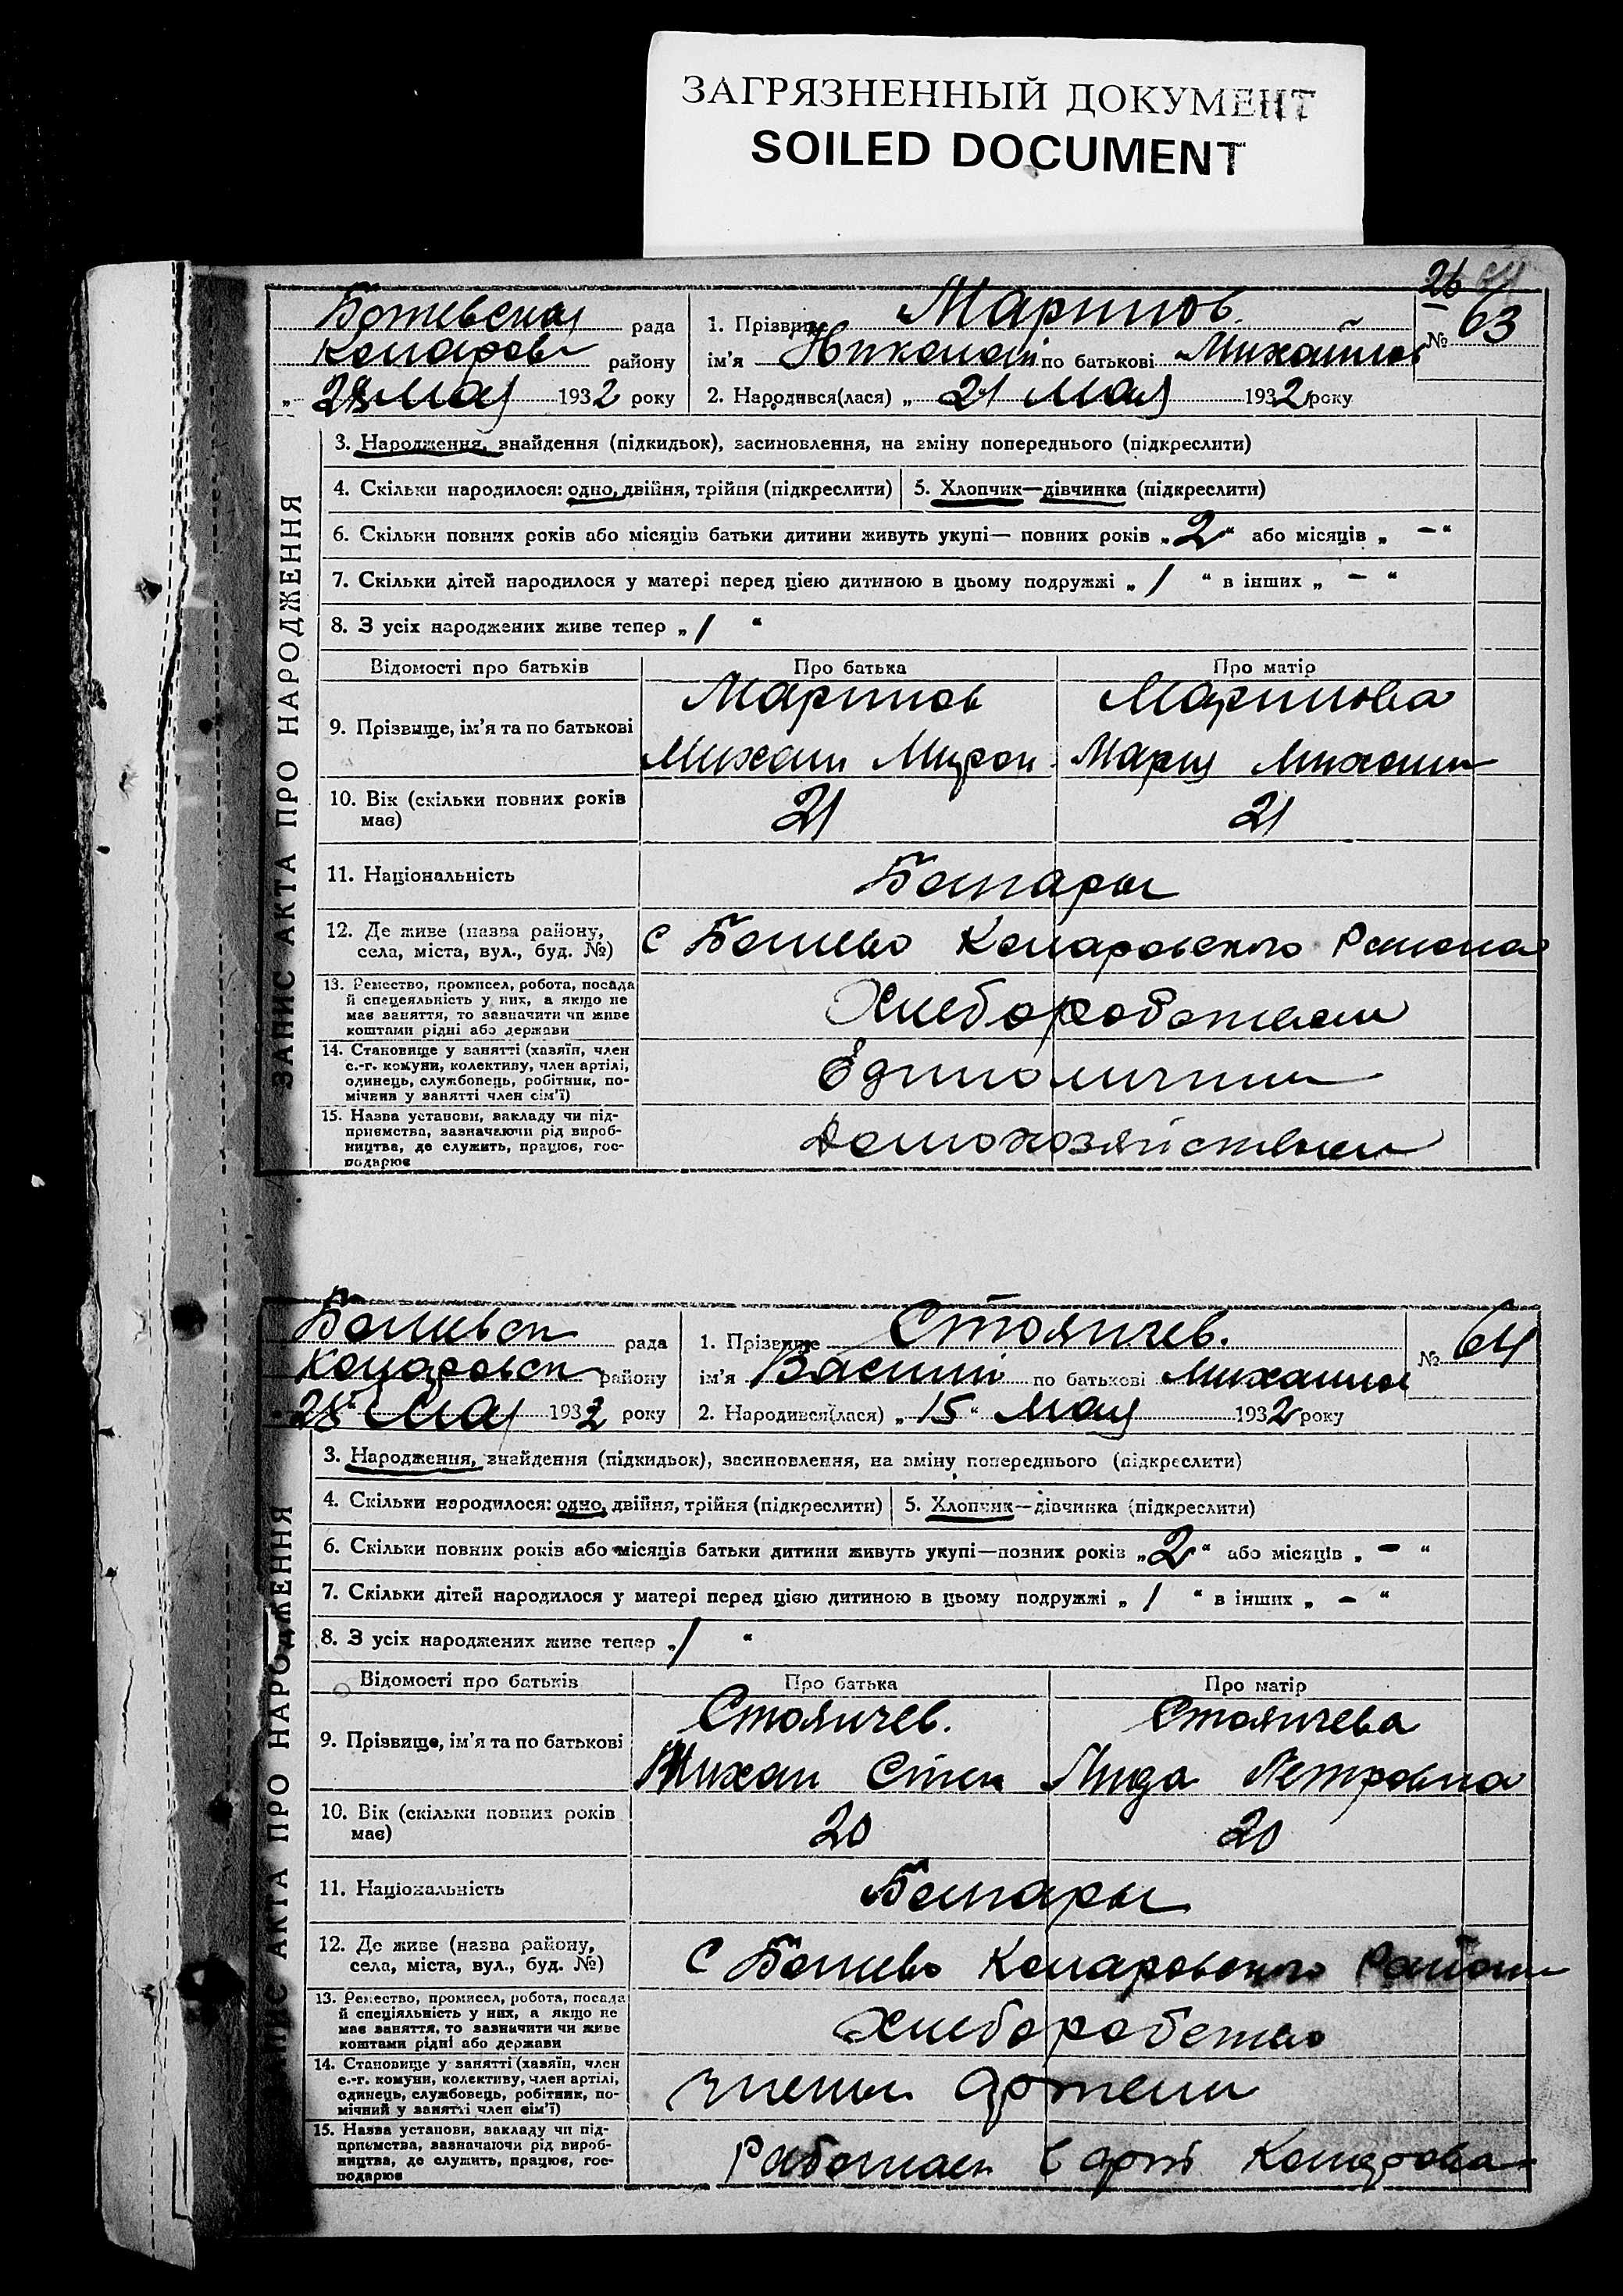 ЗАГРЯЗНЕННЫЙ ДОКУМЕНТ
SOILED DOCUMENT
26
ЗАПИС АКТА ПРО НАРОДЖЕННЯ
рада
району
28 Мая 1932 року
1. Прізвище Маринов
ім'я Николай по батькові Михайлов
№ 63
2. Народився(лася) „ 21 Мая 1932 року
3. Народження, знайдення (підкидьок), засиновлення, на зміну попереднього (підкреслити)
4. Скільки народилося: одно, двійня, трійня (підкреслити)
5. Хлопчик—дівчинка (підкреслити)
6. Скільки повних років або місяців батьки дитини живуть укупі— повних років „ 2 “ або місяців „ – “
7. Скільки дітей народилося у матері перед цією дитиною в цьому подружжі „ 1 “ в інших „ – “
8. З усіх народжених живе тепер „ 1 “
Відомості про батьків
Про батька
Про матір
9. Прізвище, ім'я та по батькові
Маринов
Маринова
Михаил Мирон
Мария Михаил
10. Вік (скільки повних років має)
21
21
11. Національність
Болгары
12. Де живе (назва району,
села, міста, вул., буд. №)
с Ботиево Коларовского Района
13. Ремество, промисел, робота, посада
й спецеяльність у них, а якщо не
має заняття, то зазначити чи живе
коштами рідні або держави
Хлеборобством
14. Становище у занятті (хазяїн, член
с.-г. комуни, колективу, член артілі,
одинець, службовець, робітник, по-
мічнив у занятті член сім'ї)
Единоличник
15. Назва установи, закладу чи під-
приємства, зазначаючи рід вироб-
ництва, де служить, працює, гос-
подарює
ЗАПИС АКТА ПРО НАРОДЖЕННЯ
рада
району
28 Мая 1932 року
1. Прізвище Стоянчев.
ім'я Василий по батькові Михайлов
№ 64
2. Народився(лася) „ 15 “ Мая 1932 року
3. Народження, знайдення (підкидьок), засиновлення, на зміну попереднього (підкреслити)
4. Скільки народилося: одно, двійня, трійня (підкреслити)
5. Хлопчик—дівчинка (підкреслити)
6. Скільки повних років або місяців батьки дитини живуть укупі—повних років „ 2 “ або місяців „ – “
7. Скільки дітей народилося у матері перед цією дитиною в цьому подружжі „ 1 “ в інших „ – “
8. З усіх народжених живе тепер „ 1 “
Відомості про батьків
Про батька
Про матір
9. Прізвище, ім'я та по батькові
Стоянчев.
Стоянчева
Михаил Степ
Лида Петровна
10. Вік (скільки повних років
має)
20
20
11. Національність
Болгары
12. Де живе (назва району,
села, міста, вул., буд. №)
С Ботиево Коларовского Района
13. Ремество, промисел, робота, посада
й спеціяльність у них, а якщо не
має заняття, то зазначити чи живе
коштами рідні або держави
Хлеборобство
14. Становище у занятті (хазяїн, член
с.-г. комуни, колективу, член артілі,
одинець, службовець, робітник, по-
мічний у занятті член сім'ї)
члены Артели
15. Назва установи, закладу чи під-
приємства, зазначаючи рід вироб-
ництва, де служить, працює, гос-
подарює
Работает в арт Коларова